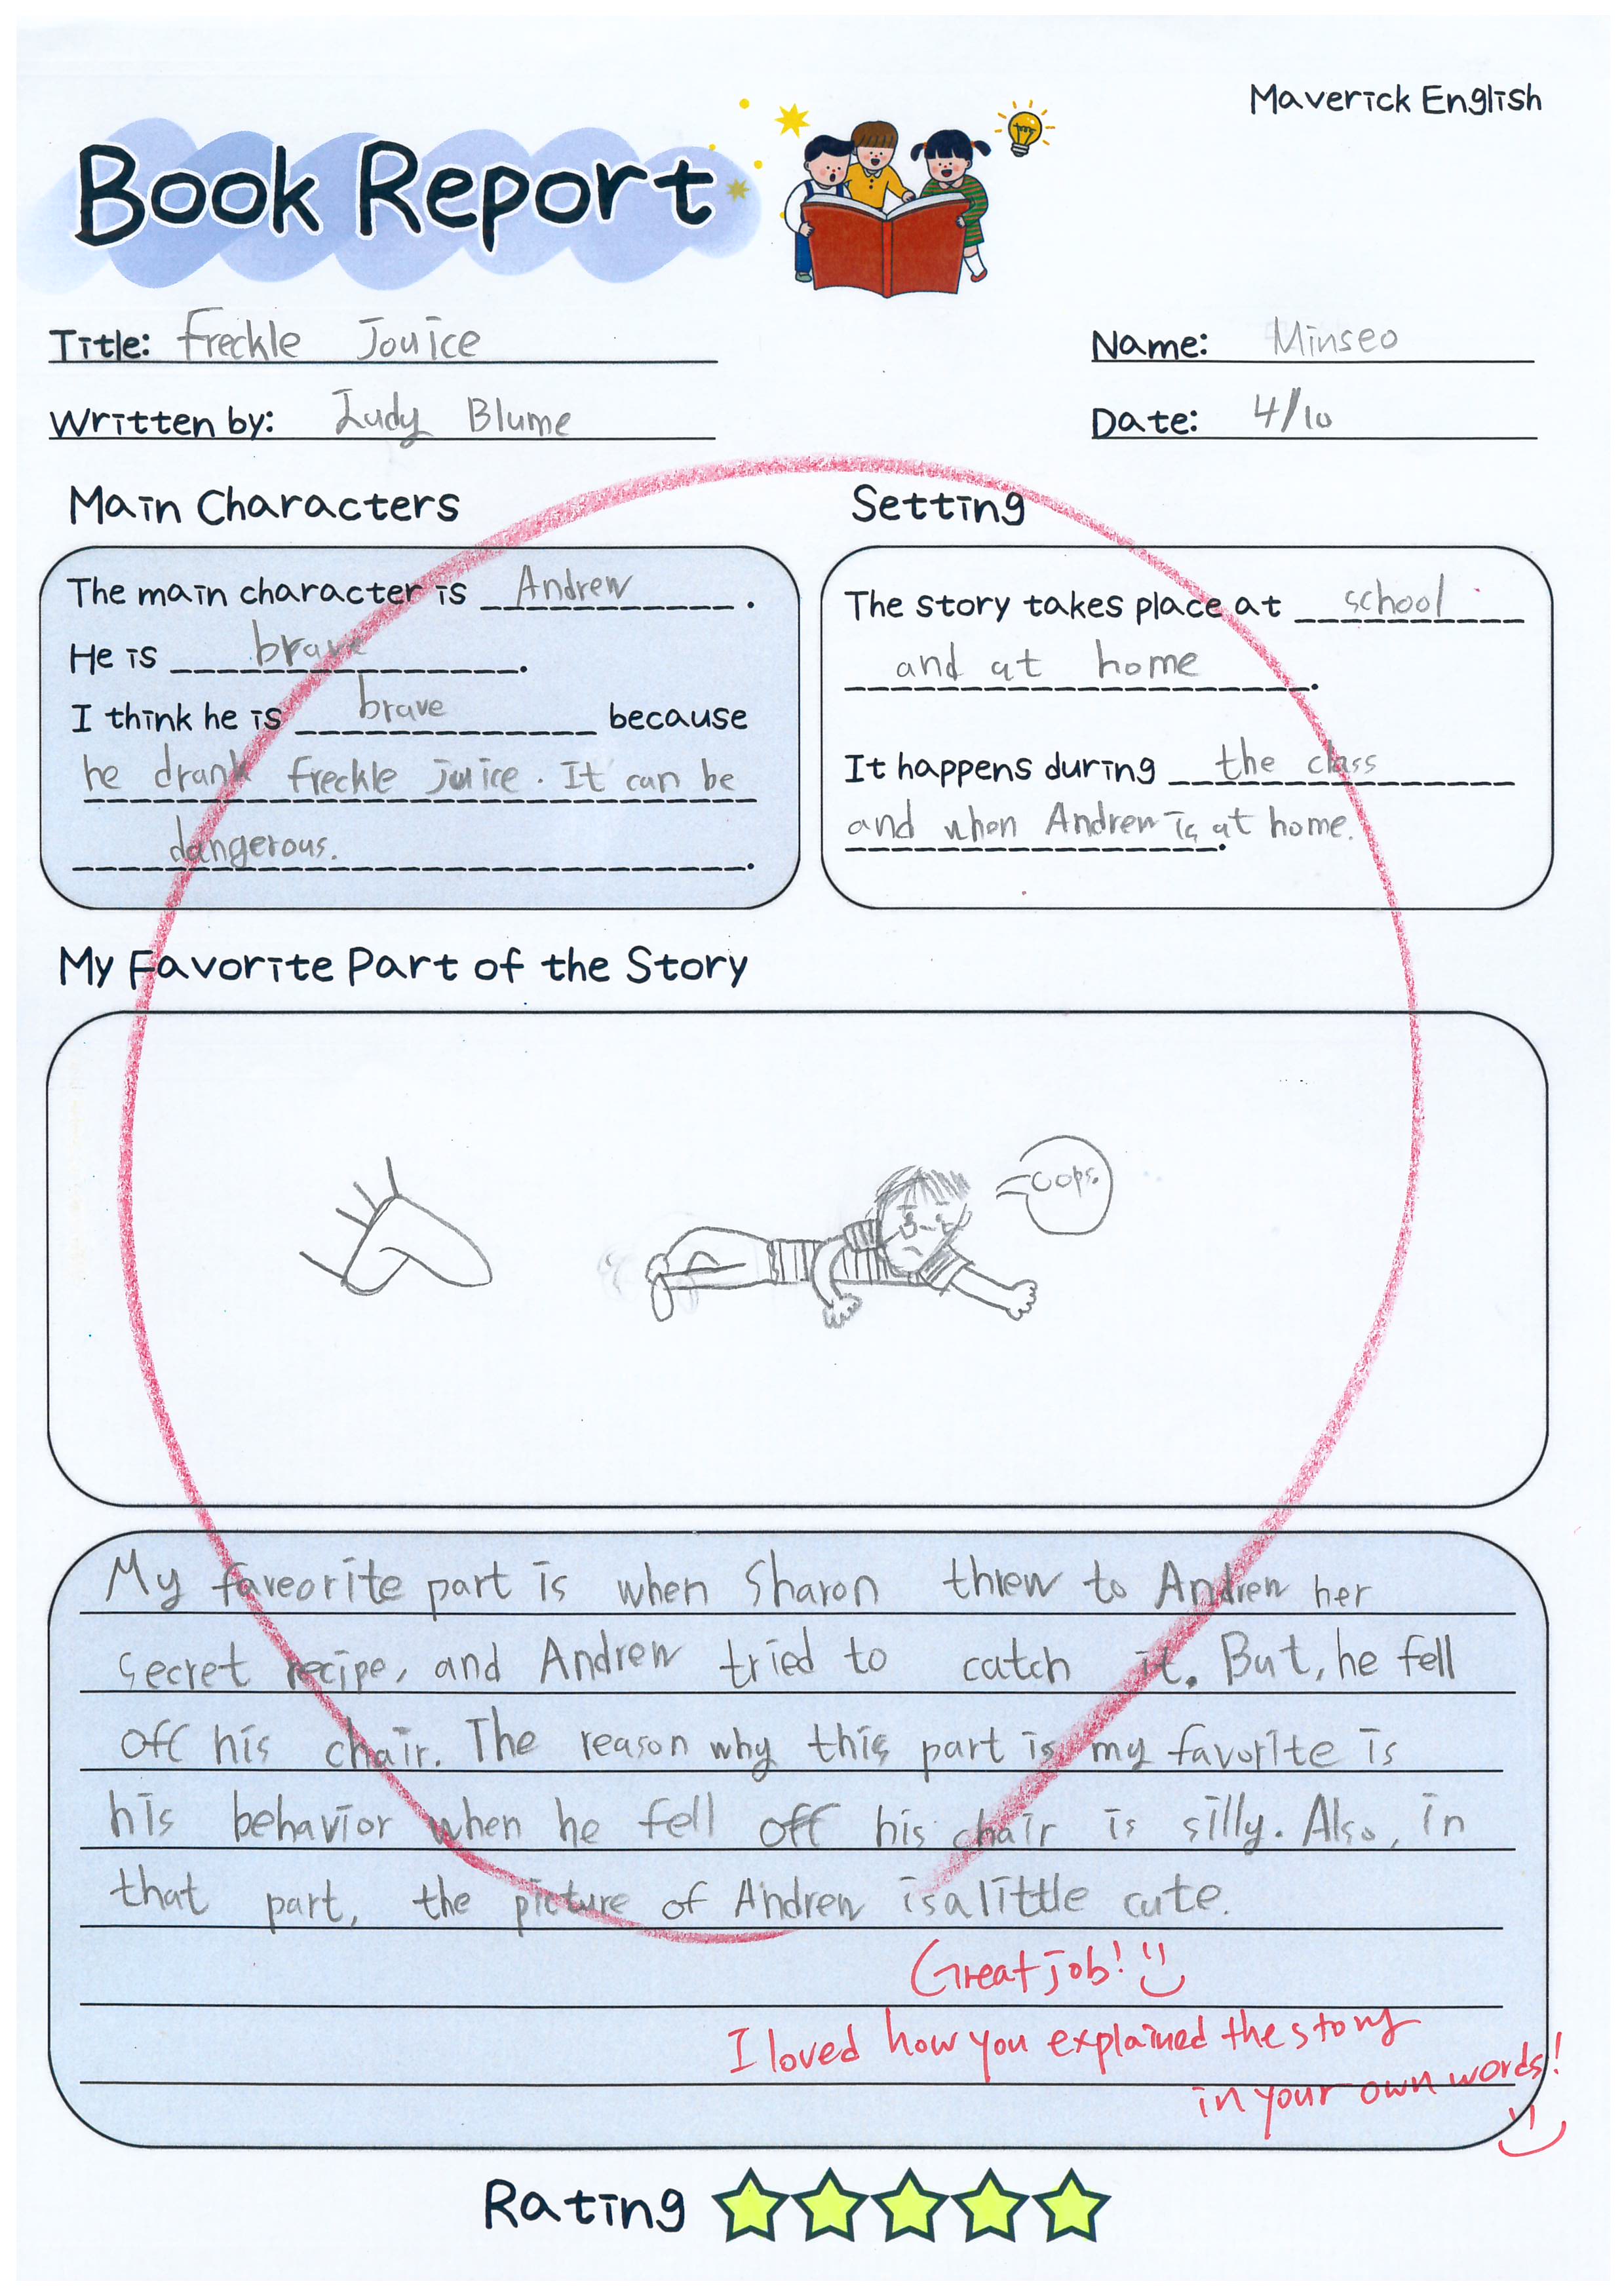 Maverick English
Book Report
Title: Freckle Jouice
Name: Minseo
Written by: Judy Blume
Date: 4/10
Main Characters
The main character is Andrew.
He is brave.
I think he is brave because
he drank freckle juice. It can be
dangerous.
Setting
The story takes place at school
and at home.
It happens during the class
and when Andrew is at home.
My Favorite Part of the Story
oops.
My faveorite part is when Sharon threw to Andrew her
secret recipe, and Andrew tried to catch it. But, he fell
off his chair. The reason why this part is my favorite is
his behavior when he fell off his chair is silly. Also, in
that part, the picture of Andrew is a little cute.
Great job!
I loved how you explained the story
in your own words!
Rating